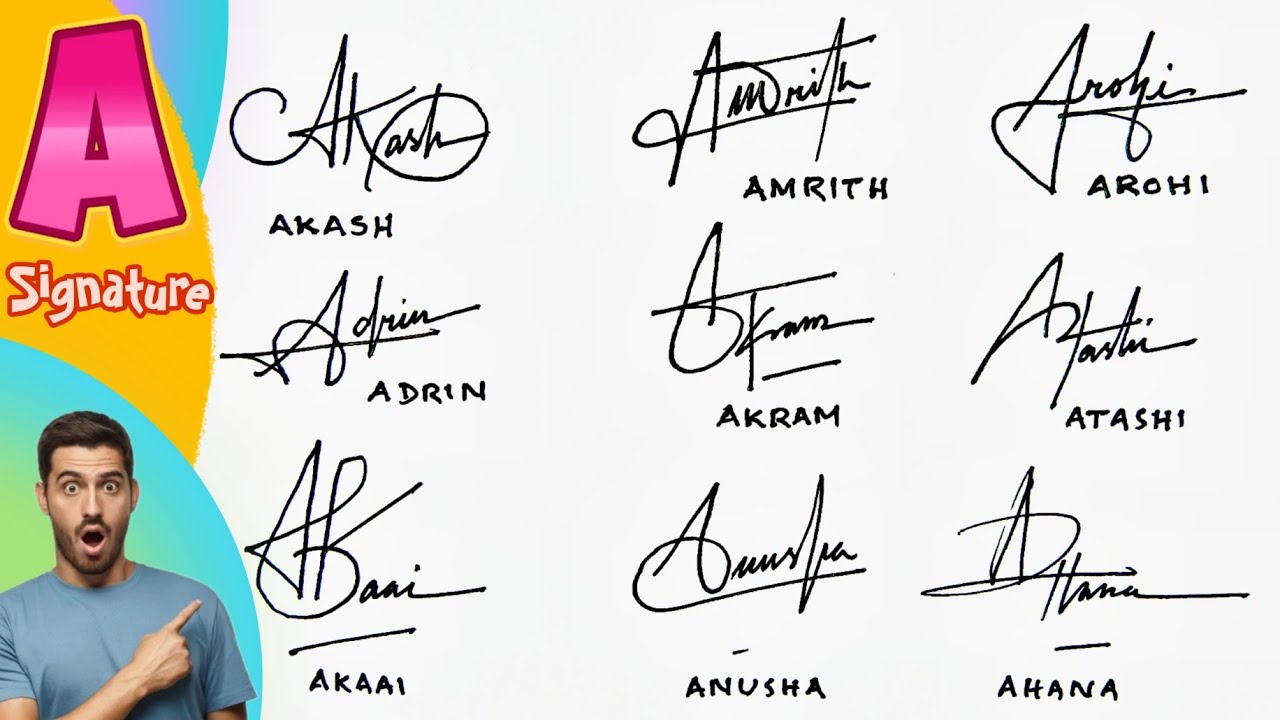 A
Signature
Akash
AKASH
Amrith
AMRITH
Arohi
AROHI
Adrin
ADRIN
Akram
AKRAM
Atashi
ATASHI
Akaai
AKAAI
Anusha
ANUSHA
Ahana
AHANA